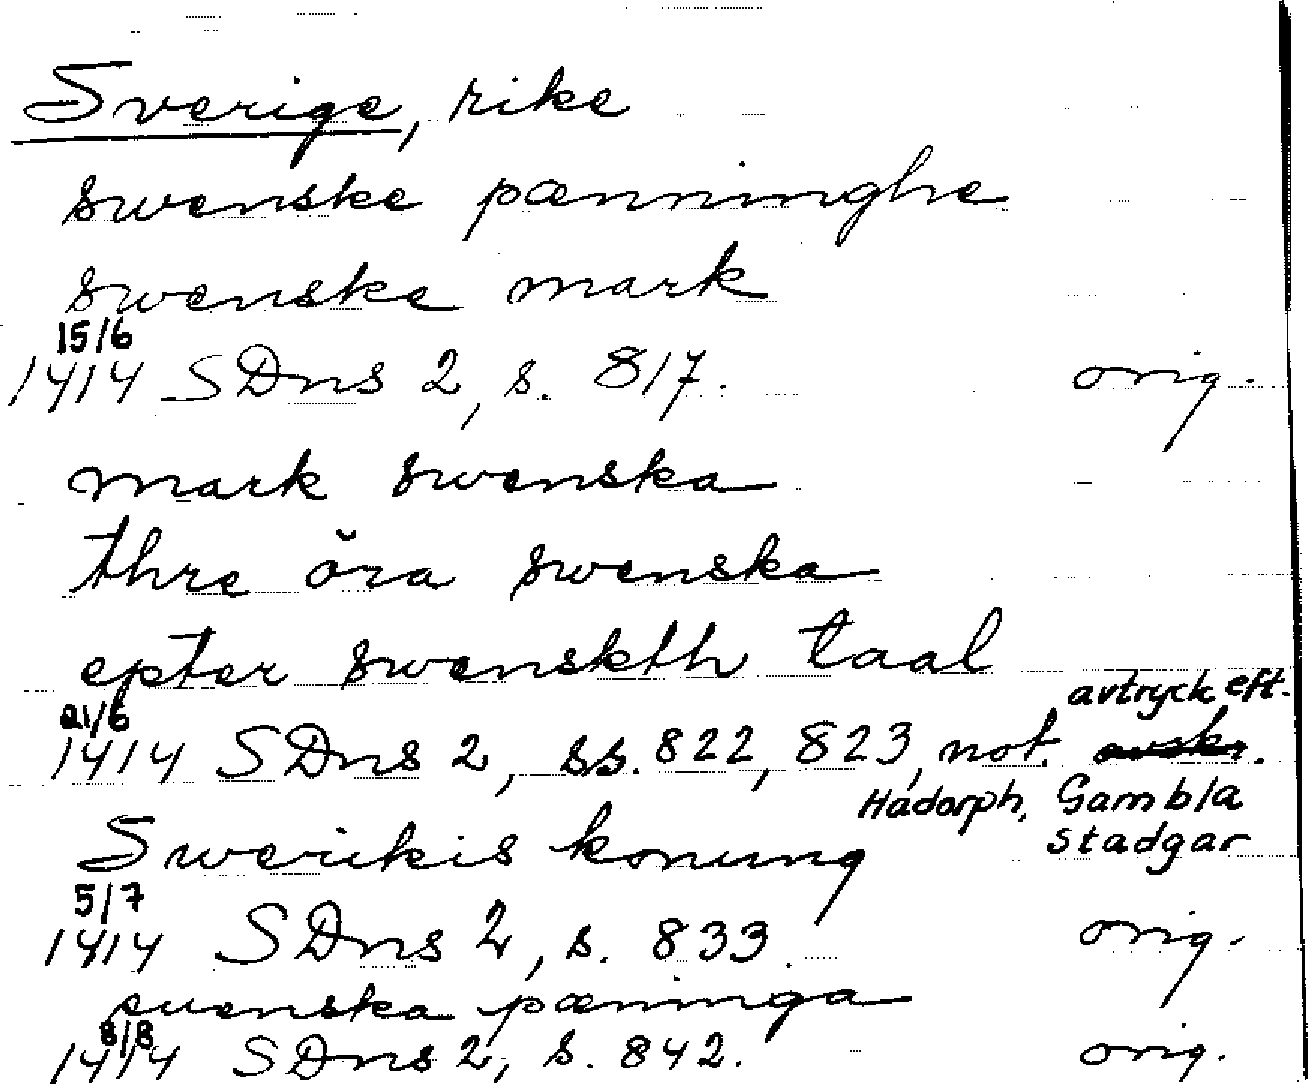 Sverige, rike
swenske pænninghe
swenske mark
15/6
1414 SDns 2, s. 817. orig.
mark swenska
thre öra swenska
epter swenskth taal
21/6
1414 SDns 2, ss. 822, 823, not. avtryck eft. avskr.
Hadorph, Gambla
stadgar
Swerikis konung
5/7
1414 SDns 2, s. 833. orig.
suenska pæninga
8/8
1414 SDns 2, s. 842. orig.